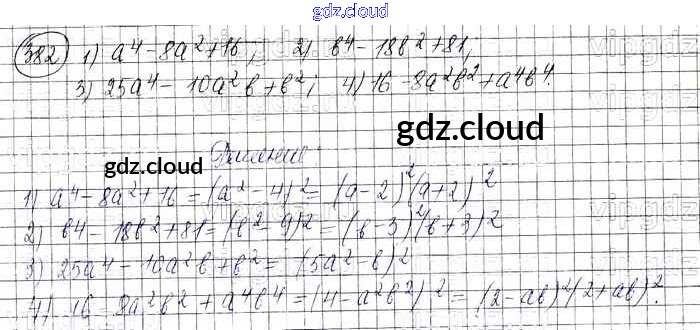 gdz.cloud
382 1) a⁴ - 8a² + 16; 2) b⁴ - 18b² + 81;
3) 25a⁴ - 10a²b + b²; 4) 16 - 8a²b² + a⁴b⁴.
gdz.cloud
gdz.cloud
Решение:
1) a⁴ - 8a² + 16 = (a² - 4)² = (a - 2)²(a + 2)²
2) b⁴ - 18b² + 81 = (b² - 9)² = (b - 3)²(b + 3)²
3) 25a⁴ - 10a²b + b² = (5a² - b)²
4) 16 - 8a²b² + a⁴b⁴ = (4 - a²b²)² = (2 - ab)²(2 + ab)².